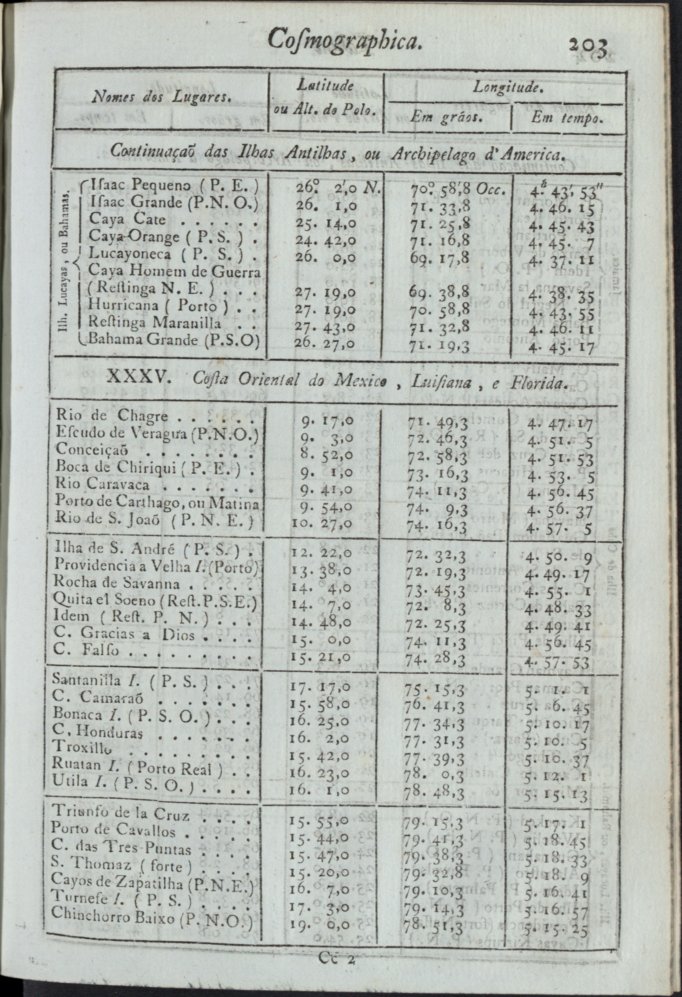 Coſmographica. 203
Nomes dos Lugares. Latitude ou Alt. do Polo. Longitude.
Em gráos. Em tempo.
Continuaçaõ das Ilhas Antilhas, ou Archipelago d'America.
Ilh. Lucayas, ou Bahamas.
Iſaac Pequeno (P. E.) 26.° 2′,0 N. 70.° 58′,8 Occ. 4.h 43′, 53″
Iſaac Grande (P.N. O.) 26. 1,0 71. 33,8 4. 46. 15
Caya Cate . . . . . . 25. 14,0 71. 25,8 4. 45. 43
Caya Orange (P. S.) . 24. 42,0 71. 16,8 4. 45. 7
Lucayoneca (P. S.) . 26. 0,0 69. 17,8 4. 37. 11
Caya Homem de Guerra
(Reſtinga N. E.) . . . 27. 19,0 69. 38,8 4. 38. 35
Hurricana (Porto) . . 27. 19,0 70. 58,8 4. 43. 55
Reſtinga Maranilla . . 27. 43,0 71. 32,8 4. 46. 11
Bahama Grande (P.S.O) 26. 27,0 71. 19,3 4. 45. 17
XXXV. Coſta Oriental do Mexico, Luiſiana, e Florida.
Rio de Chagre . . . . . . 9. 17,0 71. 49,3 4. 47. 17
Eſcudo de Veragua (P.N.O.) 9. 3,0 72. 46,3 4. 51. 5
Conceiçaõ . . . . . . . 8. 52,0 72. 58,3 4. 51. 53
Boca de Chiriqui (P. E.) . 9. 1,0 73. 16,3 4. 53. 5
Rio Caravaca . . . . . . 9. 41,0 74. 11,3 4. 56. 45
Porto de Carthago, ou Matina 9. 54,0 74. 9,3 4. 56. 37
Rio de S. Joaõ (P. N. E.) 10. 27,0 74. 16,3 4. 57. 5
Ilha de S. André (P. S.) . 12. 22,0 72. 32,3 4. 50. 9
Providencia a Velha I. (Porto) 13. 38,0 72. 19,3 4. 49. 17
Rocha de Savanna . . . . 14. 4,0 73. 45,3 4. 55. 1
Quita el Soeno (Reſt.P.S.E.) 14. 7,0 72. 8,3 4. 48. 33
Idem (Reſt. P. N.) . . . 14. 48,0 72. 25,3 4. 49. 41
C. Gracias a Dios . . . . 15. 0,0 74. 11,3 4. 56. 45
C. Falſo . . . . . . . . . 15. 21,0 74. 28,3 4. 57. 53
Santanilla I. (P. S.) . . . 17. 17,0 75. 15,3 5. 1. 1
C. Camaraõ . . . . . . 15. 58,0 76. 41,3 5. 6. 45
Bonaca I. (P. S. O.) . . . 16. 25,0 77. 34,3 5. 10. 17
C. Honduras . . . . . . 16. 2,0 77. 31,3 5. 10. 5
Troxillo . . . . . . . . 15. 42,0 77. 39,3 5. 10. 37
Ruatan I. (Porto Real) . . 16. 23,0 78. 0,3 5. 12. 1
Utila I. (P. S. O.) . . . . 16. 1,0 78. 48,3 5. 15. 13
Triunfo de la Cruz . . . . 15. 55,0 79. 15,3 5. 17. 1
Porto de Cavallos . . . . 15. 44,0 79. 41,3 5. 18. 45
C. das Tres Puntas . . . . 15. 47,0 79. 38,3 5. 18. 33
S. Thomaz (forte) . . . . 15. 20,0 79. 32,8 5. 18. 9
Cayos de Zapatilha (P.N.E.) 16. 7,0 79. 10,3 5. 16. 41
Turnefe I. (P. S.) . . . . 17. 3,0 79. 14,3 5. 16. 57
Chinchorro Baixo (P. N.O.) 19. 0,0 78. 51,3 5. 15. 25
Cc 2